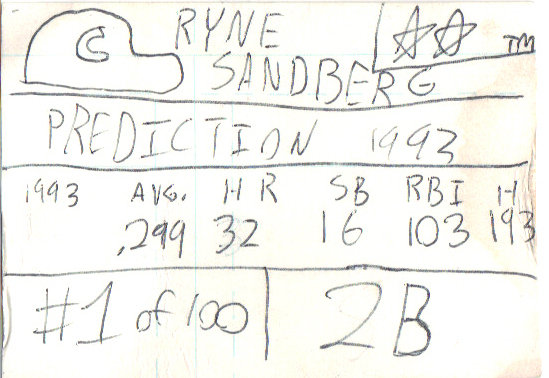 C
RYNE
SANDBERG
TM
PREDICTION 1993
1993 AVG. HR SB RBI H
.299 32 16 103 193
#1 of 100
2B